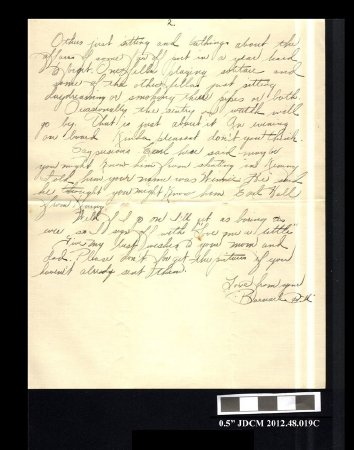 2
Others just sitting and talking about the
affairs of some
fight. One fella playing solitaire and
some of the other fellas just sitting
daydreaming or smoking their pipes or both.
Occasionally the sentry on watch will
go by. That is just about it. An evening
on Guard. Kinda pleasant don't you think.
Say precious Earl was said maybe
you might know him from skating in
Told him your name was He said
he thought you might know him Earl Hall
from
Well if I go on I'll get as boring as
ever so I sign off with "Love me a little"
Give my best wishes to your mom and
dad. Please don't forget the pictures of you
haven't already sent them.
Love from your
Bill
0.5" JDCM 2012.48.019C